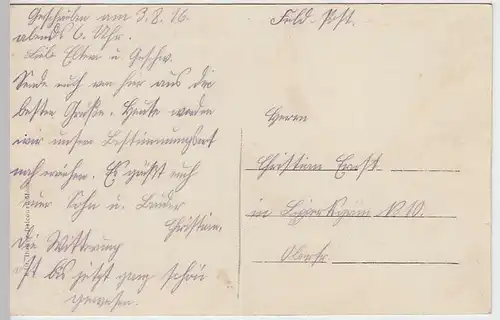 Geschrieben am 3.8.16.
abends 6. Uhr.
Liebe Eltern u Geschw.
Sende euch von hier aus die
besten Grüße. Heute werden
wir unsern Bestimmungsort
noch erreichen. Es grüßt euch
euer Sohn u. Bruder
Christian.
Die Witterung
ist bis jetzt ganz schön
gewesen.
Feld-Post.
Herrn
Christian Ernst
in N 10.
Oberfr.